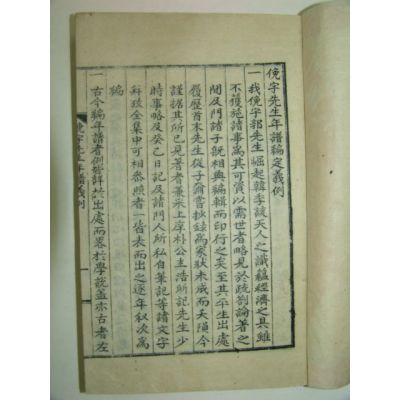 俛字先生年譜編定義例
一我俛宇郭先生崛起韓季該天人之識蘊經濟之具雖
不獲施諸事爲其可資以需世者略見於疏劄論著之
間及門諸子旣相與編輯而印行之矣至其平生出處
履歷首末先生從子奫嘗抄錄爲家狀未成而夭殞今
謹据其所已見著者兼采上庠朴公圭浩所記先生少
時事略及癸巳日記及諸門人所私自筆記等諸文字
叅攷全集中可相叅照者一皆表而出之逐年叙次爲
編
一古今編年譜者例皆詳於出處而畧於學說盖亦古者左
俛宇先生年譜義例
一